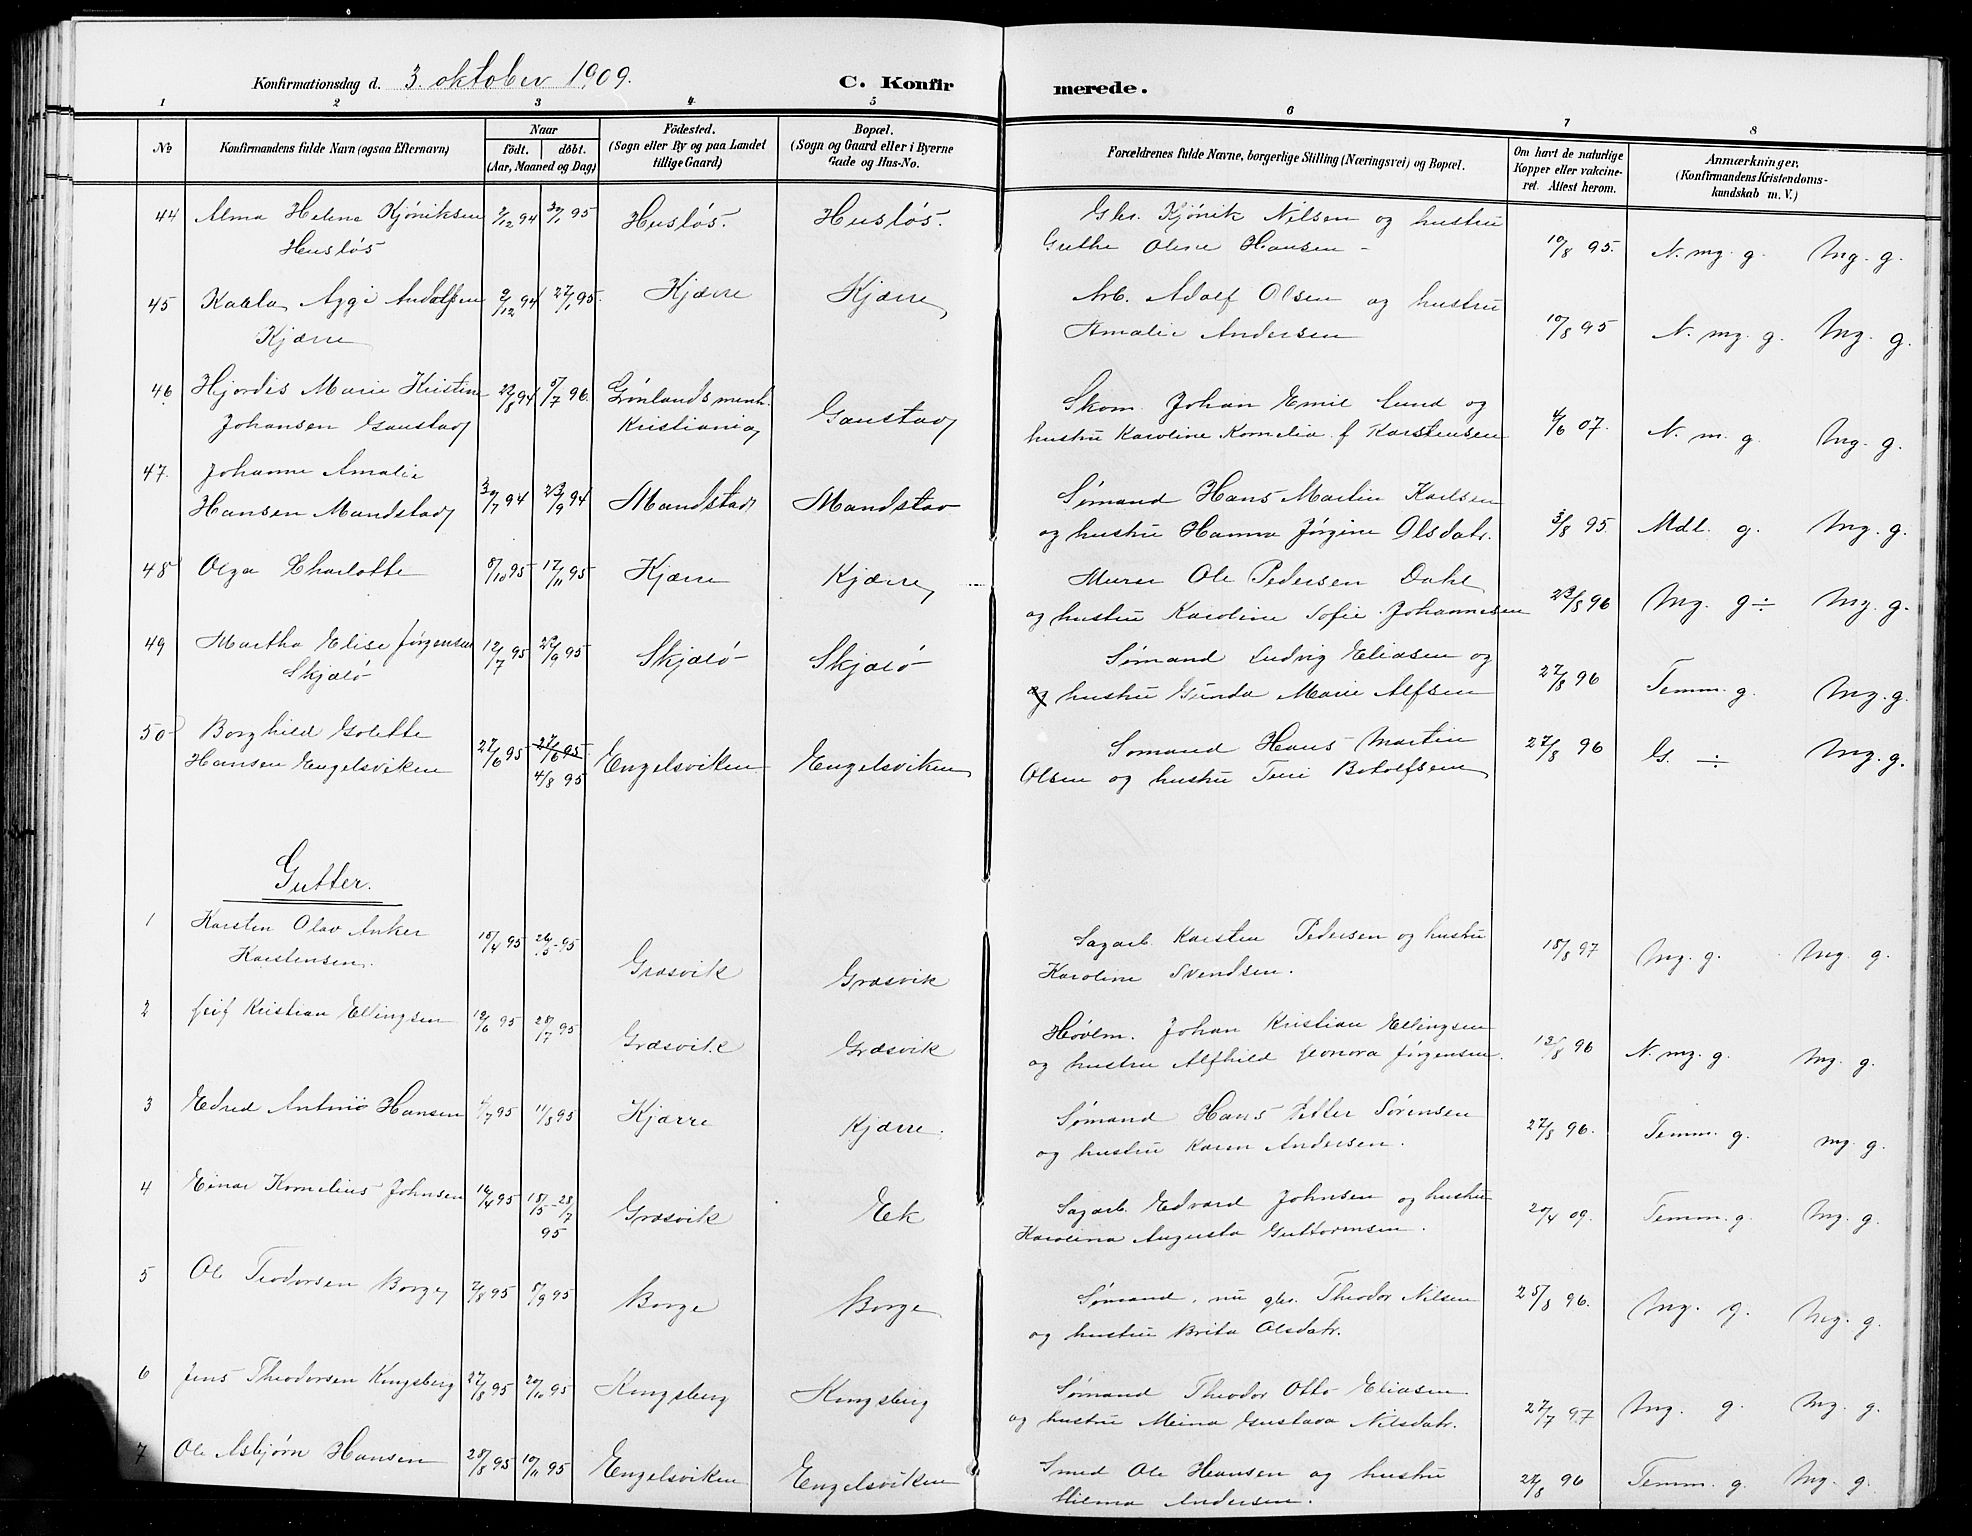 Konfirmationsdag d. 3. oktober 1909. C. Konfirmerede.
1 2 3 4 5 6 7 8
No Konfirmandens fulde Navn (ogsaa Efternavn) Naar født. døbt. (Aar, Maaned og Dag) Födested. (Sogn eller By og paa Landet tillige Gaard) Bopæl. (Sogn og Gaard eller i Byerne Gade og Hus-No. Forældrenes fulde Navne, borgerlige Stilling (Næringsvei) og Bopæl. Om havt de naturlige Kopper eller vakcineret. Attest herom. Anmærkninger, (Konfirmandens Kristendomskundskab m. V.)
44 Alma Helene Kjöniksen 9/12 94 20/1 95 Husløs. Husløs. Gbr. Kjönik Nilsen og hustru
Husløs Grethe Oline Hansen - 10/8 95. N. mg. g. Mg. g.
45 Kalla Aggi Andolfsen 9/12 94 27/1 95. Kjærre Kjærre Arb. Adolf Olsen og hustru
Kjærre Amalie Andersen 10/8 95 N. mg. g. Mg. g.
46 Hjördis Marie Kristine 22/8 94 5/7 96. Grønlands menh. Gaustad Skom. Johan Emil Lund og
Johansen Gaustad Kristiania hustru Karoline Kornelia f Karstensen 4/6 07. N. m. g. Mg. g.
47. Johanne Amalie
Hansen Mandstad 30/7 94 23/9 94 Mandstad Mandstad Sømand Hans Martin Karlsen
og hustru Hanna Jørgine Olsdatr. 3/8 95. Mdl. g. Mg. g.
48 Olga Charlotte 5/10 95 17/11 95 Kjærre Kjærre Murer Ole Pedersen Dahl
og hustru Karoline Sofie Johannesen 29/8 96 Mg. g ÷ Mg. g.
49 Martha Elise Jørgensen 12/7 95 22/9 95 Skjælø Skjælø Sømand Ludvig Eliasen og
Skjælø og hustru Gunda Marie Alfsen 27/8 96 Temm. g. Mg. g.
50 Borghild Golette
Hansen Engelsviken 27/6 95 27/6 95 4/8 95 Engelsviken Engelsviken Sømand Hans Martin
Olsen og hustru Turi Botolfsen 27/8 96 G. ÷ Mg. g.
Gutter.
1 Karsten Olav Anker 15/4 95 26/5 95 Græsvik Græsvik Sagarb. Karsten Pedersen og hustru
Karstensen. Karoline Svendsen. 18/8 97 Mg. g. Mg. g.
2 Leif Kristian Ellingsen 12/6 95 28/7 95 Græsvik Græsvik Høvlm. Johan Kristian Ellingsen
og hustru Alfhild Leonora Jørgensen. 12/8 96 N. mg. g. Mg. g.
3 Edred Antinio Hansen 4/7 95 11/8 95 Kjærre Kjærre. Sømand Hans Petter Sørensen
og hustru Karen Andersen. 27/8 96. Temm. g. mg. g.
4 Einar Kornelius Johnsen 16/4 95 18/5 - 28/7 95 Græsvik Ek Sagarb. Edvard Johnsen og hustru
Karolina Augusta Guttormsen. 20/4 09. Temm. g. Mg. g.
5 Ole Teodorsen Borge 7/8 95 8/9 95 Borge Borge Sømand, nu gbr. Theodor Nilsen
og hustru Brita Olsdatr. 25/8 96. Mg. g. Mg. g.
6 Jens Theodorsen Kongsberg 27/8 95 20/10 95 Kongsberg Kongsberg Sømand Theodor Otto Eliasen
og hustru Meina Gustava Nilsdatr. 27/7 97 Mg. g. Mg. g.
7 Ole Asbjørn Hansen 28/8 95 10/11 95 Engelsviken Engelsviken Smed Ole Hansen og hustru
Hilma Andersen. 27/8 96 Temm. g. Mg. g.